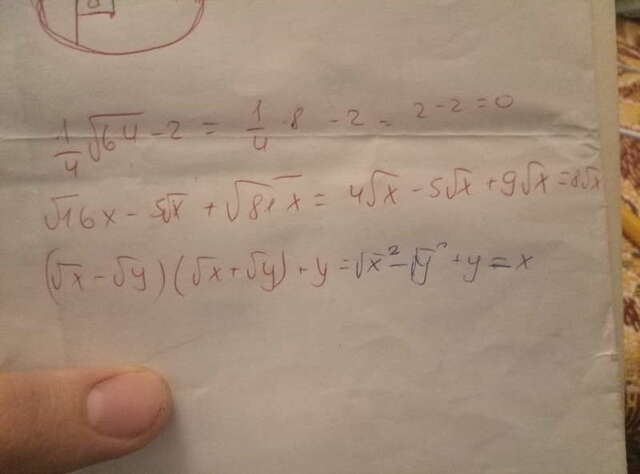 1/4 √64 - 2 = 1/4 · 8 - 2 = 2 - 2 = 0
√16x - 5√x + √81x = 4√x - 5√x + 9√x = 8√x
(√x - √y)(√x + √y) + y = √x² - √y² + y = x